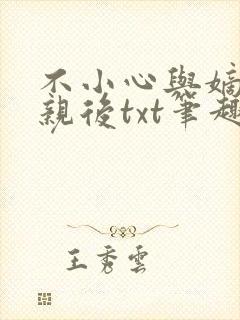 不小心與嫡
親後txt筆趣
王秀雲